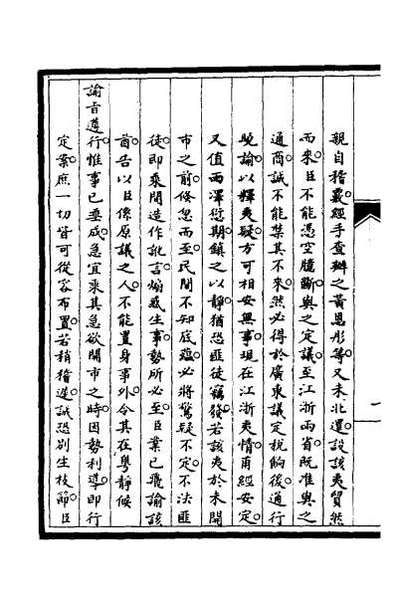 親自稽覈。經手查辦之黃恩彤等。又未北還。設該夷貿然
而來。臣不能憑空臆斷。與之定議。至江浙兩省。既准與之
通商。誠不能禁其不來。然必得於廣東議定稅餉。後通行
曉諭。以釋夷疑。方可相安無事。現在江浙夷情甫經安定。
又值雨澤愆期。鎮之以靜。猶恐匪徒竊發。若該夷於未開
市之前。倏忽而至。民間不知底蘊。必將驚疑不定。不法匪
徒。即乘間造作訛言。煽惑生事。勢所必至。臣業已飛諭該
酋。告以臣係原議之人。不能置身事外。令其在粵靜候
諭旨遵行。惟事已垂成。急宜乘其急欲開市之時。因勢利導。即行
定案。庶一切皆可從容布置。若稍稽遲。誠恐別生枝節。臣
一